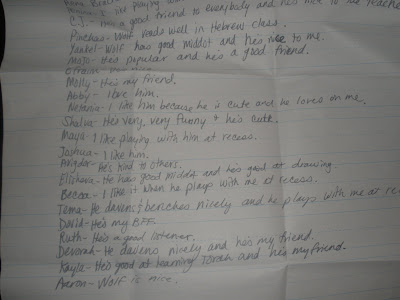 I like playing wi
C.J. - Has a good friend to everybody and he's nice to the teache
Pinchas - Wolf reads well in Hebrew class.
Yankel - Wolf has good middot and he's nice to me.
MoJo - He's popular and he's a good friend.
Efraim - nice
Molly - He's my friend.
Abby - I love him.
Netania - I like him because he is cute and he loves on me.
Shalva - He's very, very funny & he's cute.
Maya - I like playing with him at recess.
Joshua - I like him.
Avigdor - He's kind to others.
Elishava - He has good middot and he's good at drawing.
Becca - I like it when he plays with me at recess.
Tema - He davens & benches nicely and he plays with me at re
David - He's my BFF.
Ruth - He's a good listener.
Devorah - He davens nicely and he's my friend.
Kayla - He's good at learning Torah and he's my friend.
Aaron - Wolf is nice.